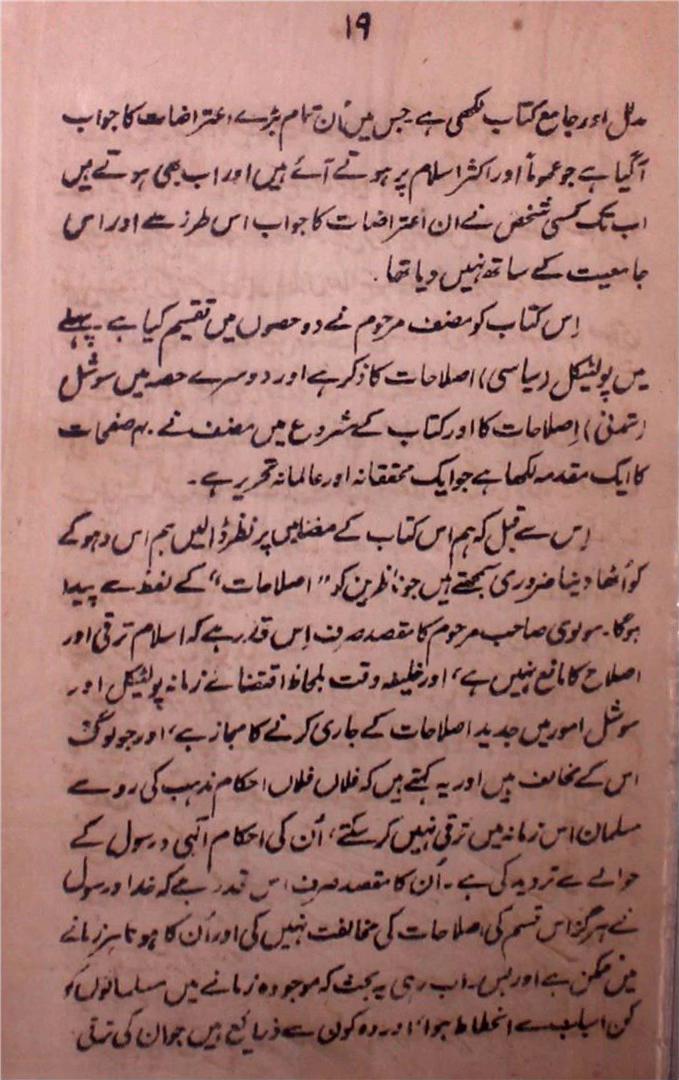 ۱۹
مدلل اور جامع کتاب لکھی ہے جس میں اُن تمام بڑے اعتراضات کا جواب
آگیا ہے جو عموماً اور اکثر اسلام پر ہوتے آئے ہیں اور اب بھی ہوتے ہیں
اب تک کسی شخص نے ان اعتراضات کا جواب اس طرز سے اور اس
جامعیت کے ساتھ نہیں دیا تھا۔
اِس کتاب کو مصنف مرحوم نے دو حصوں میں تقسیم کیا ہے۔ پہلے
میں پولٹیکل (سیاسی) اصلاحات کا ذکر ہے اور دوسرے حصہ میں سوشل
(تمدنی) اِصلاحات کا اور کتاب کے شروع میں مصنف نے ۴۰ صفحات
کا ایک مقدمہ لکھا ہے جو ایک محققانہ اور عالمانہ تحریر ہے۔
اِس سے قبل کہ ہم اس کتاب کے مضامین پر نظر ڈالیں ہم اس دہوکے
کو اُٹھا دینا ضروری سمجھتے ہیں جو ناظرین کو "اصلاحات" کے لفظ سے پیدا
ہوگا۔ مولوی صاحب مرحوم کا مقصد صرف اِس قدر ہے کہ اسلام ترقی اور
اصلاح کا مانع نہیں ہے، اور خلیفہ وقت بلحاظ اقتضائے زمانہ پولٹیکل اور
سوشل امور میں جدید اصلاحات کے جاری کرنے کا مجاز ہے، اور جو لوگ
اس کے مخالف ہیں اور یہ کہتے ہیں کہ فلاں فلاں احکام مذہب کی رو سے
مسلمان اس زمانہ میں ترقی نہیں کرسکتے، اُن کی احکام الٰہی و رسول کے
حوالے سے تردید کی ہے۔ اُن کا مقصد صرف اس قدر ہے کہ خدا و رسول
نے ہرگز اس قسم کی اصلاحات کی مخالفت نہیں کی اور اُن کا ہونا ہر زمانے
میں ممکن ہے اور بس۔ اب رہی یہ بحث کہ موجودہ زمانے میں مسلمانوں کو
کن اسباب سے انحطاط ہوا، اور وہ کون سے ذرائع ہیں جو ان کی ترقی